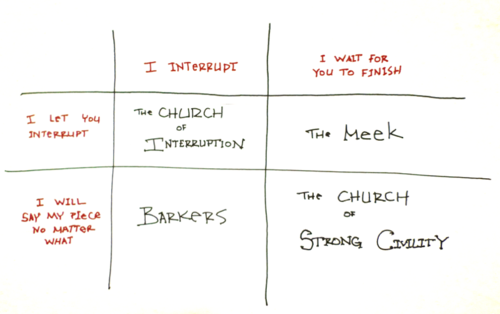 I INTERRUPT
I WAIT FOR
YOU TO FINISH
I LET YOU
INTERRUPT
THE CHURCH
OF
INTERRUPTION
THE MEEK
I WILL
SAY MY PIECE
NO MATTER
WHAT
BARKERS
THE CHURCH
OF
STRONG CIVILITY